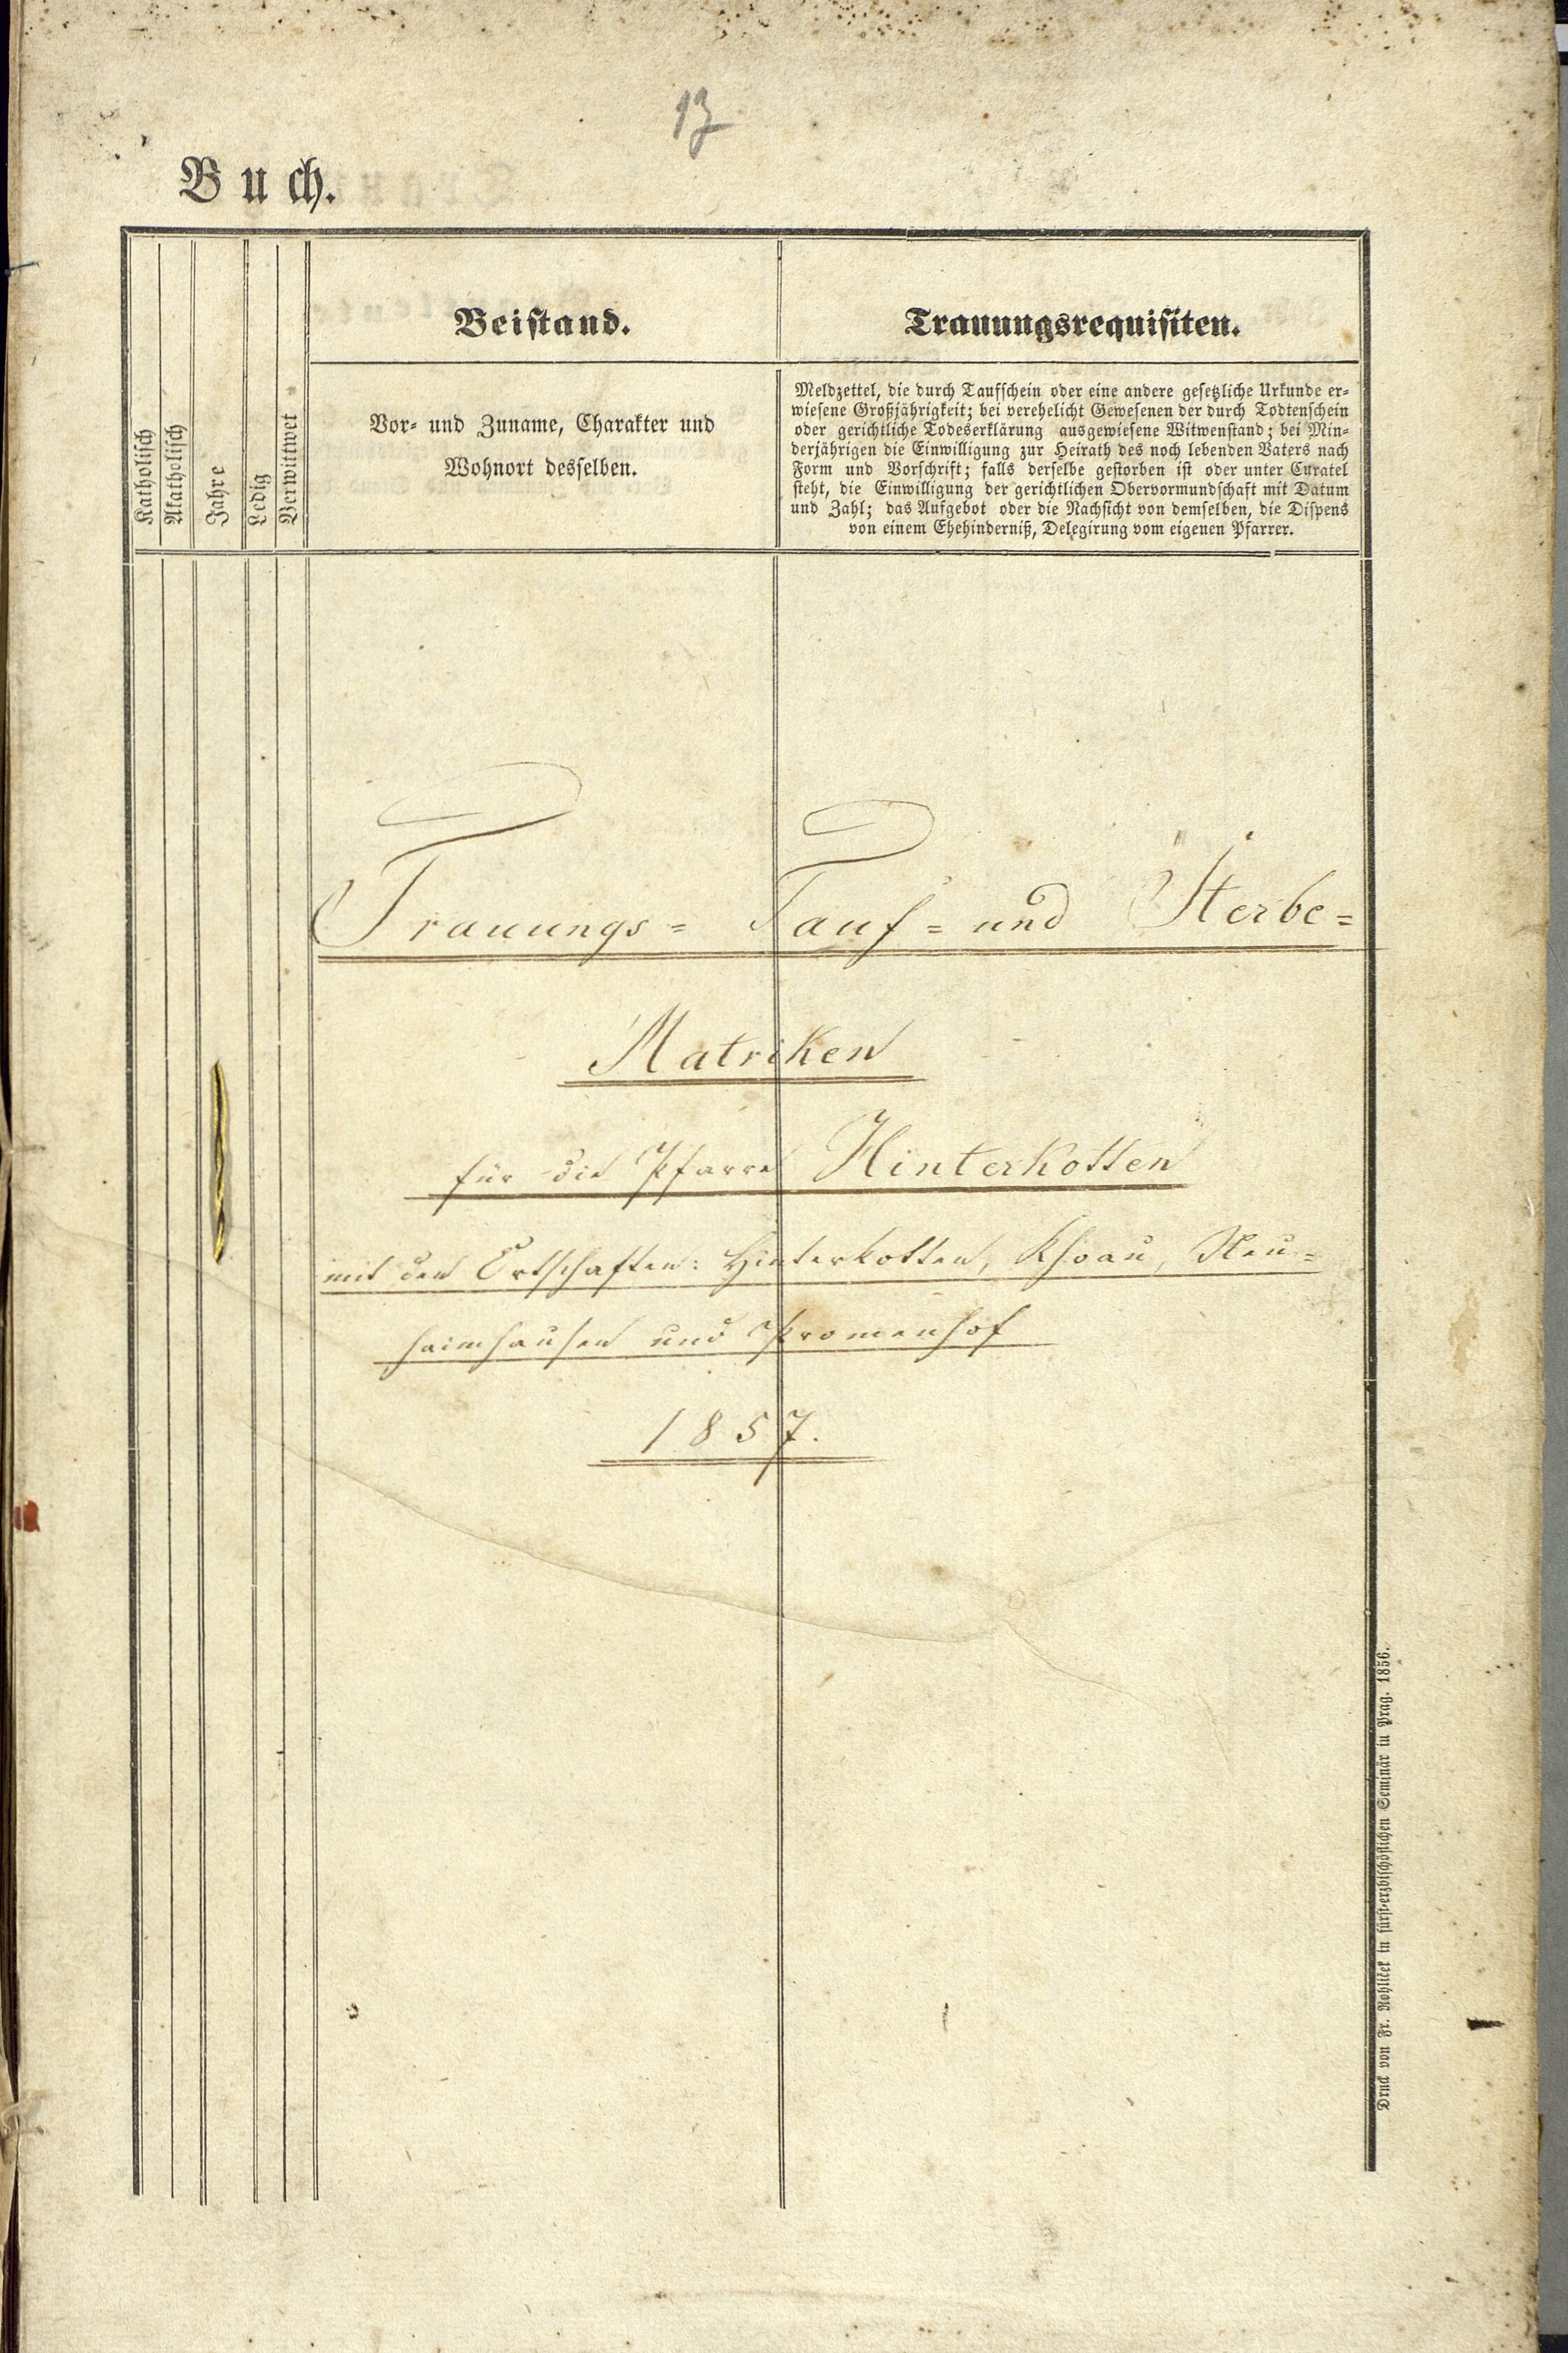 13
Buch.
Katholisch
Akatholisch
Jahre
Ledig
Verwittwet
Beistand.
Vor- und Zuname, Charakter und
Wohnort desselben.
Trauungsrequisiten.
Meldzettel, die durch Taufschein oder eine andere gesetzliche Urkunde er-
wiesene Großjährigkeit; bei verehelicht Gewesenen der durch Todtenschein
oder gerichtliche Todeserklärung ausgewiesene Witwenstand; bei Min-
derjährigen die Einwilligung zur Heirath des noch lebenden Vaters nach
Form und Vorschrift; falls derselbe gestorben ist oder unter Curatel
steht, die Einwilligung der gerichtlichen Obervormundschaft mit Datum
und Zahl; das Aufgebot oder die Nachsicht von demselben, die Dispens
von einem Ehehinderniß, Delegirung vom eigenen Pfarrer.
Trauungs= Tauf= und Sterbe=
Matriken
für die Pfarre Hinterkotten
mit den Ortschaften: Hinterkotten, Khoau, Neu=
haimhausen und Promenhof
1857.
Druck von Fr. Rohliček in fürst-erzbischöflichen Seminär in Prag. 1856.